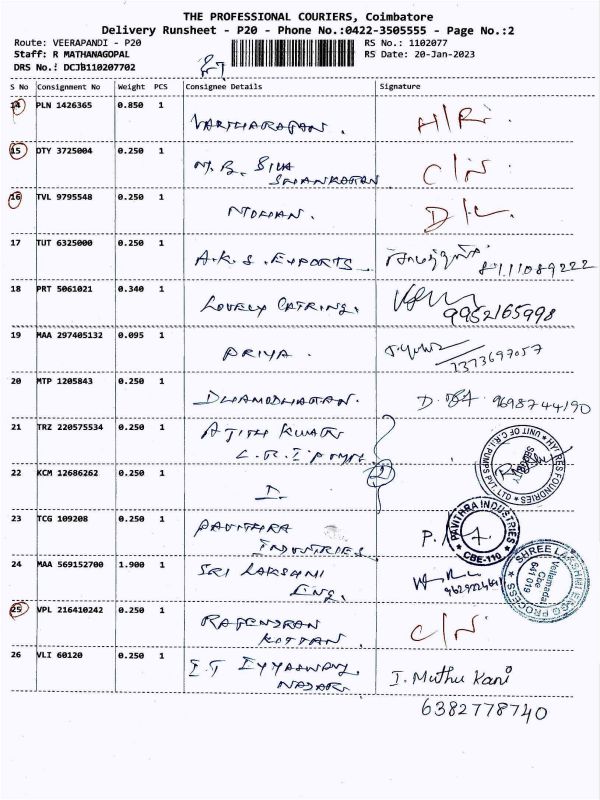 THE PROFESSIONAL COURIERS, Coimbatore
Delivery Runsheet - P20 - Phone No.:0422-3505555 - Page No.:2
Route: VEERAPANDI - P20 RS No.: 1102077
Staff: R MATHANAGOPAL RS Date: 20-Jan-2023
DRS No.: DCJB110207702
S No Consignment No Weight PCS Consignee Details Signature
14 PLN 1426365 0.850 1
VARTHARAJAN. H/Ri
15 DTY 3725004 0.250 1
M.B. SIVA C/N
SHANKARAN
16 TVL 9795548 0.250 1
MOHAN. D/L.
17 TUT 6325000 0.250 1
A.K.S. EXPORTS 8111089222
18 PRT 5061021 0.340 1
LOVELY CATRING. 9952165998
19 MAA 297405132 0.095 1
PRIYA. 7373697057
20 MTP 1205843 0.250 1
DHAMODHARAN. D. 9698744190
21 TRZ 220575534 0.250 1
AJITH KUMAR
C.R.I PUMP
UNIT OF C.R.I PUMPS PVT. LTD
SECURITY
22 KCM 12686262 0.250 1
23 TCG 109208 0.250 1
PAVITHRA
INDUSTRIES
PAVITHRA INDUSTRIES
CBE-110
24 MAA 569152700 1.900 1
SRI LAKSHMI
ENG.
SHREE LAKSHMI ENGG PROCESS
Vellamadai
Cbe
641 019
25 VPL 216410242 0.250 1
RAJENDRAN C/N
KOTTAN
26 VLI 60120 0.250 1
E.T EYYASWAMY I. Muthu Kani
NADAR
6382778740